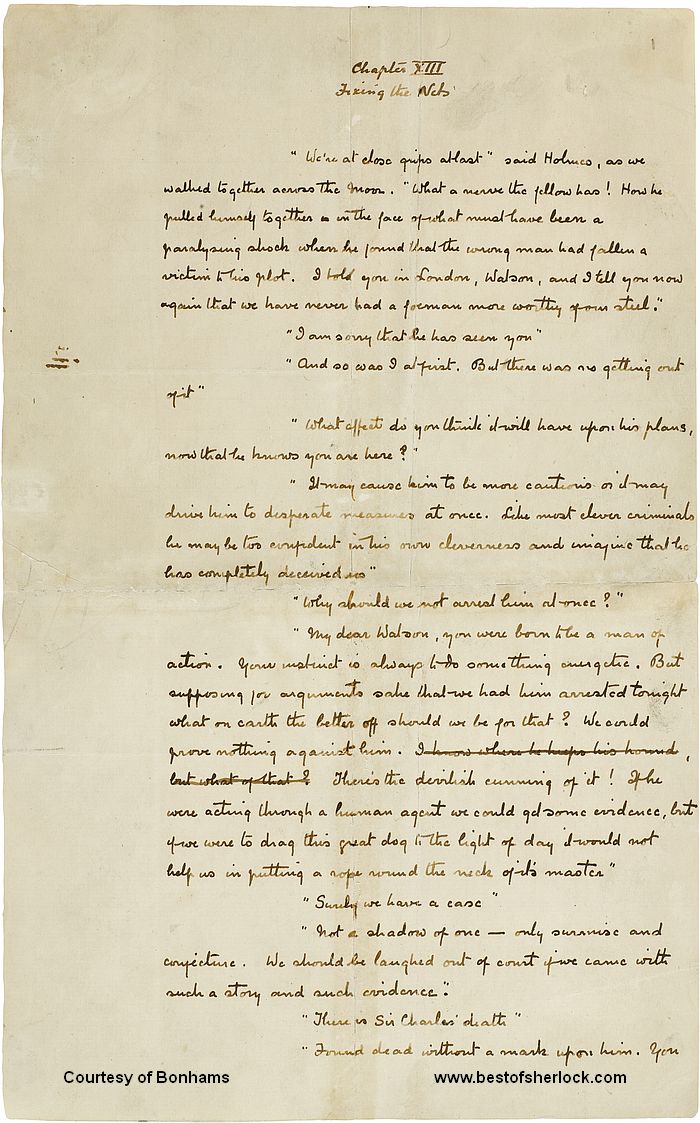 Chapter XIII
Fixing the Nets
"We're at close grips at last" said Holmes, as we
walked together across the Moor. "What a nerve the fellow has! How he
pulled himself together in the face of what must have been a
paralysing shock when he found that the wrong man had fallen a
victim to his plot. I told you in London, Watson, and I tell you now
again that we have never had a foeman more worthy of our steel."
"I am sorry that he has seen you"
"And so was I at first. But there was no getting out
of it"
"What affect do you think it will have upon his plans,
now that he knows you are here?"
"It may cause him to be more cautious or it may
drive him to desperate measures at once. Like most clever criminals
he may be too confident in his own cleverness and imagine that he
has completely deceived us"
"Why should we not arrest him at once?"
"My dear Watson, you were born to be a man of
action. Your instinct is always to do something energetic. But
supposing for arguments sake that we had him arrested tonight
what on earth the better off should we be for that? We could
prove nothing against him. I know where he keeps his hound,
but what of that? There's the devilish cunning of it! If he
were acting through a human agent we could get some evidence, but
if we were to drag this great dog to the light of day it would not
help us in putting a rope round the neck of it's master"
"Surely we have a case"
"Not a shadow of one — only surmise and
conjecture. We should be laughed out of court if we came with
such a story and such evidence."
"There is Sir Charles' death"
"Found dead without a mark upon him. You
Courtesy of Bonhams
www.bestofsherlock.com